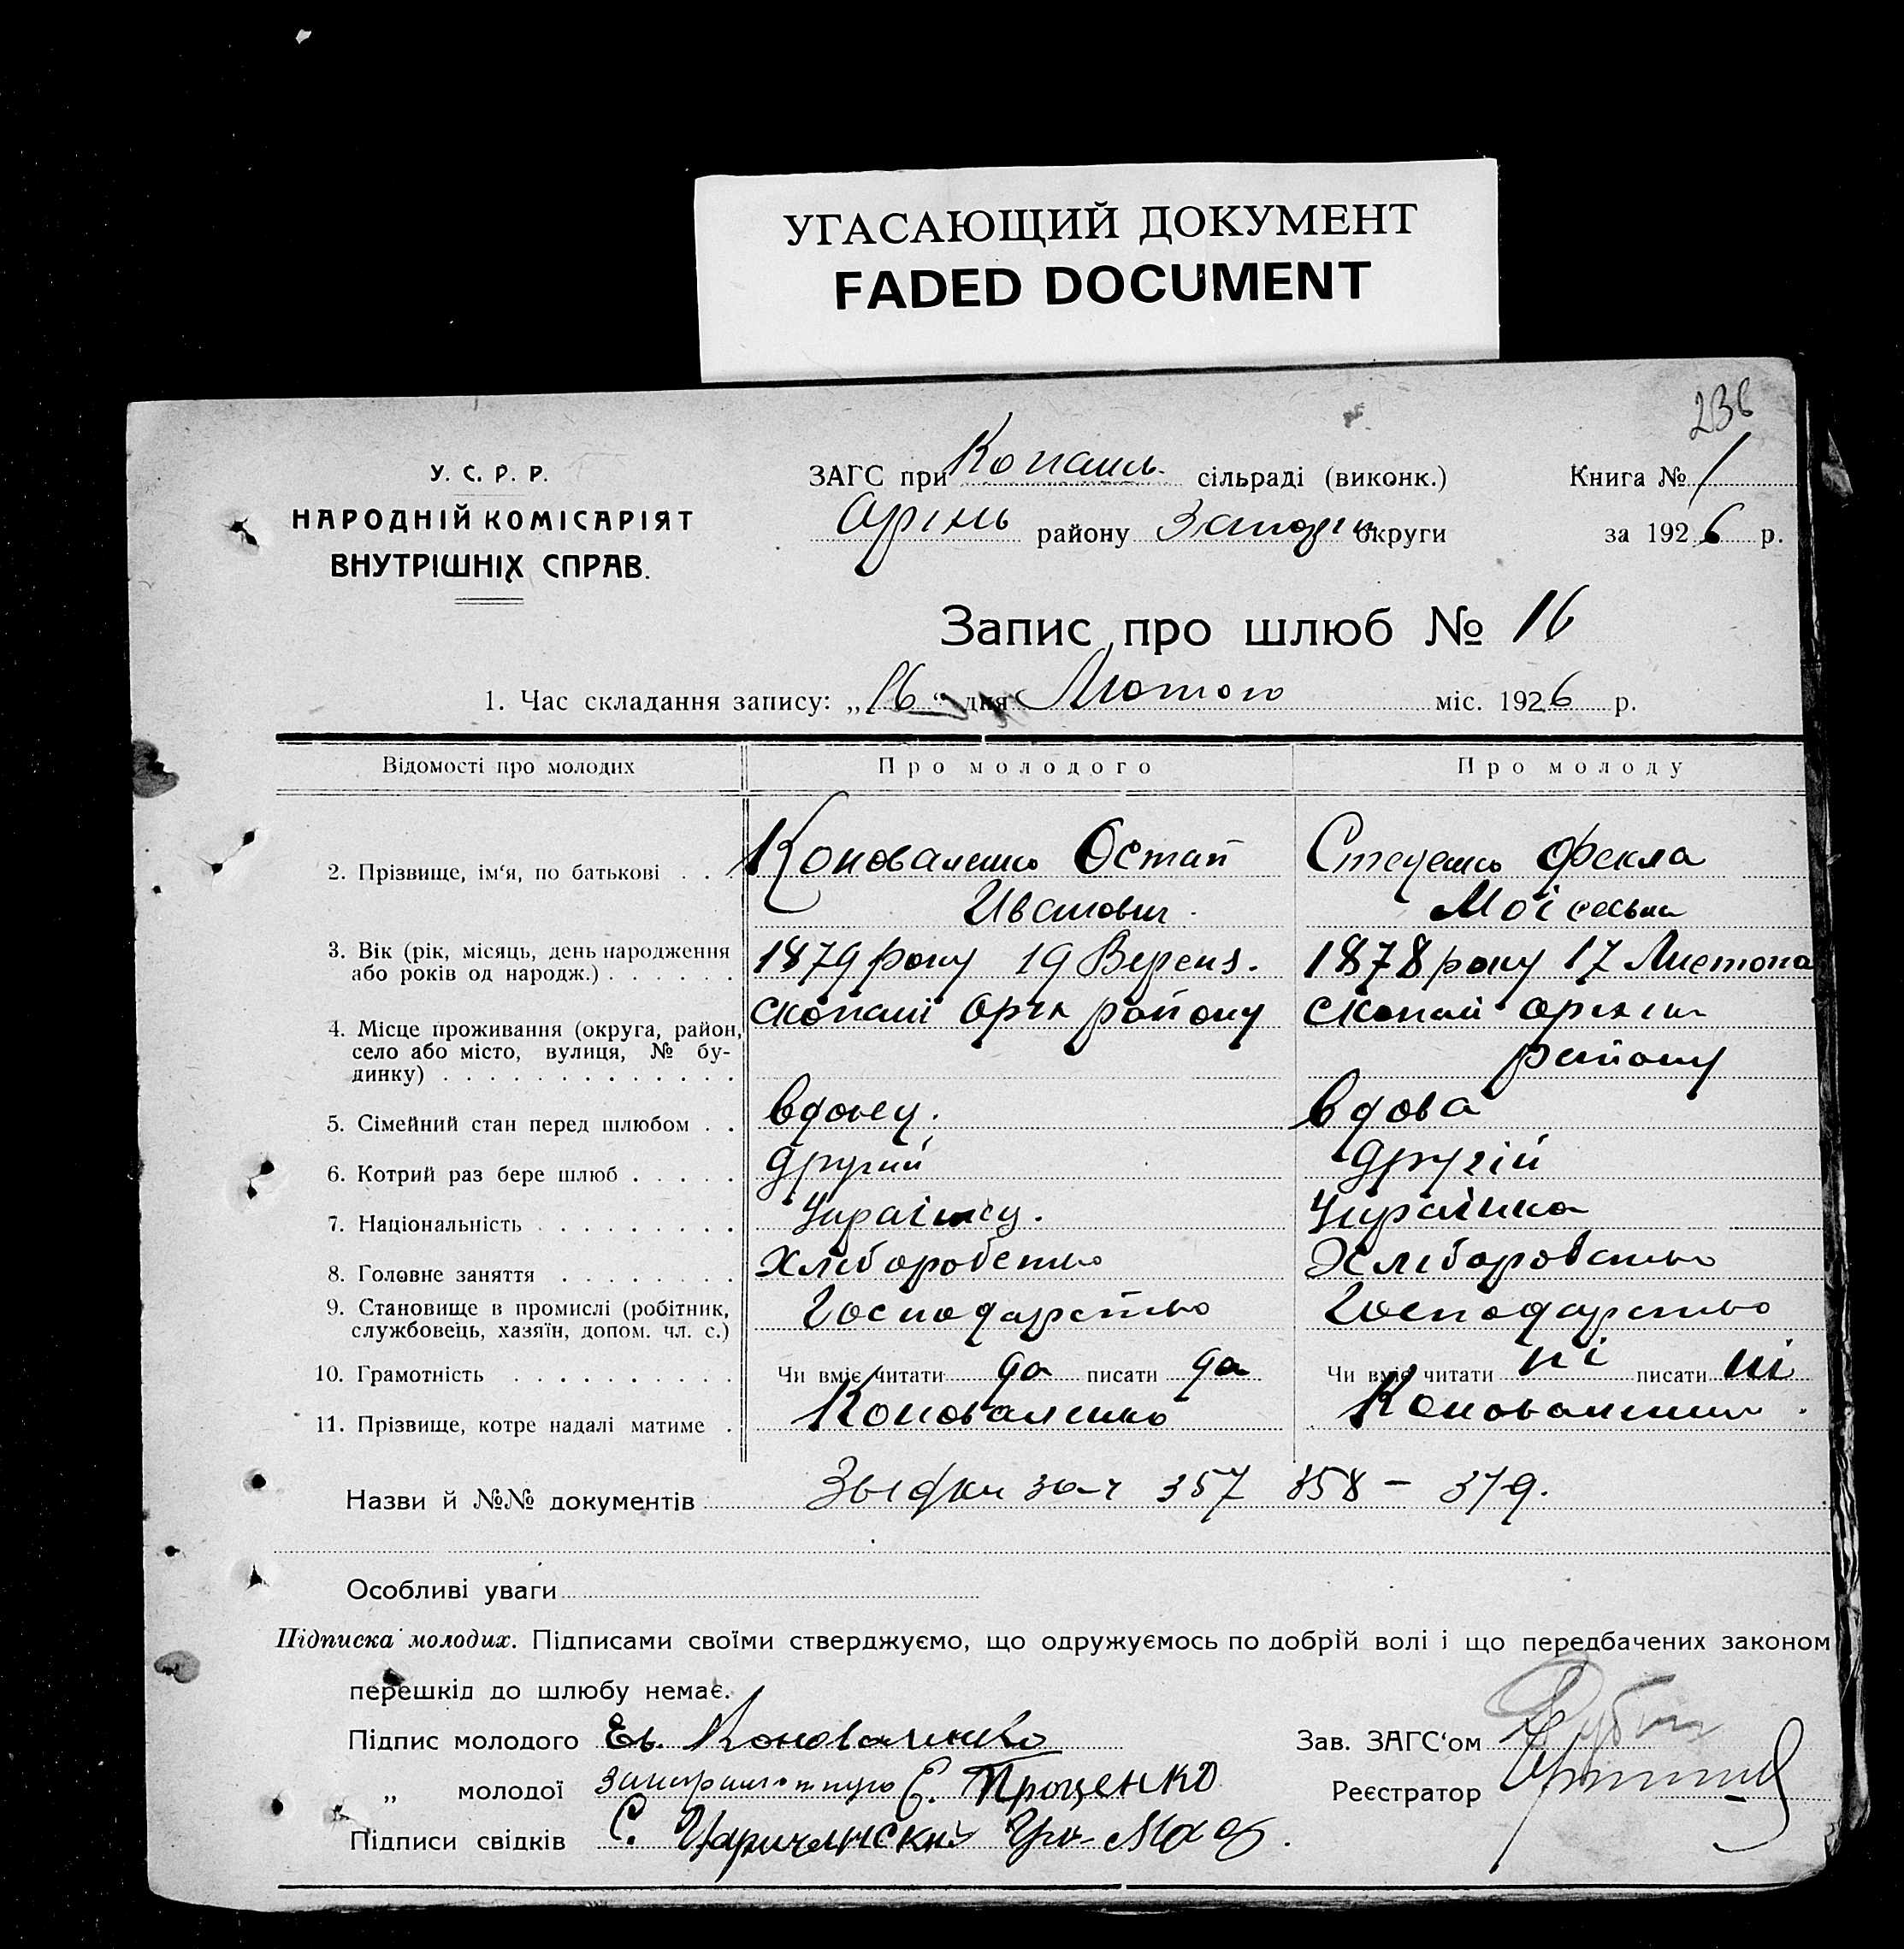 УГАСАЮЩИЙ ДОКУМЕНТ
FADED DOCUMENT
236
У. С. Р. Р.
НАРОДНІЙ КОМІСАРІЯТ
ВНУТРІШНІХ СПРАВ.
ЗАГС при Копань. сільраді (виконк.)
Книга № 1
Оріхь району Запоріж округи
за 1926 р.
Запис про шлюб № 16
1. Час складання запису: „16“ дня Лютого міс. 1926 р.
Відомості про молодих
Про молодого
Про молоду
2. Прізвище, ім‘я, по батькові . . .
Коноваленко Остап
Иванович.
Стеценко Фекла
Моісеевна
3. Вік (рік, місяць, день народження
або років од народж.) . . . . . .
1879 року 19 Вересн.
1878 року 17 Листопа
4. Місце проживання (округа, район,
село або місто, вулиця, № бу-
динку) . . . . . . . . . . . . .
скопані Оріх району
скопані Оріхін
району
5. Сімейний стан перед шлюбом . .
вдовец.
вдова
6. Котрий раз бере шлюб . . . . .
другий
другій
7. Національність . . . . . . . . .
Украінец.
Украінка
8. Головне заняття . . . . . . . .
Хліборобство
Хліборобство
9. Становище в промислі (робітник,
службовець, хазяїн, допом. чл. с.)
Господарство
Господарство
10. Грамотність . . . . . . . . . .
Чи вміє читати да писати да
Чи вміє читати ні писати ні
11. Прізвище, котре надалі матиме .
Коноваленко
Коноваленко.
Назви й №№ документів 357 358 – 379.
Особливі уваги
Підписка молодих. Підписами своїми стверджуємо, що одружуємось по добрій волі і що передбачених законом
перешкід до шлюбу немає.
Підпис молодого Ев. Коноваленко
Зав. ЗАГС‘ом
„ молодої Є. Проценко
Реєстратор
Підписи свідків С.